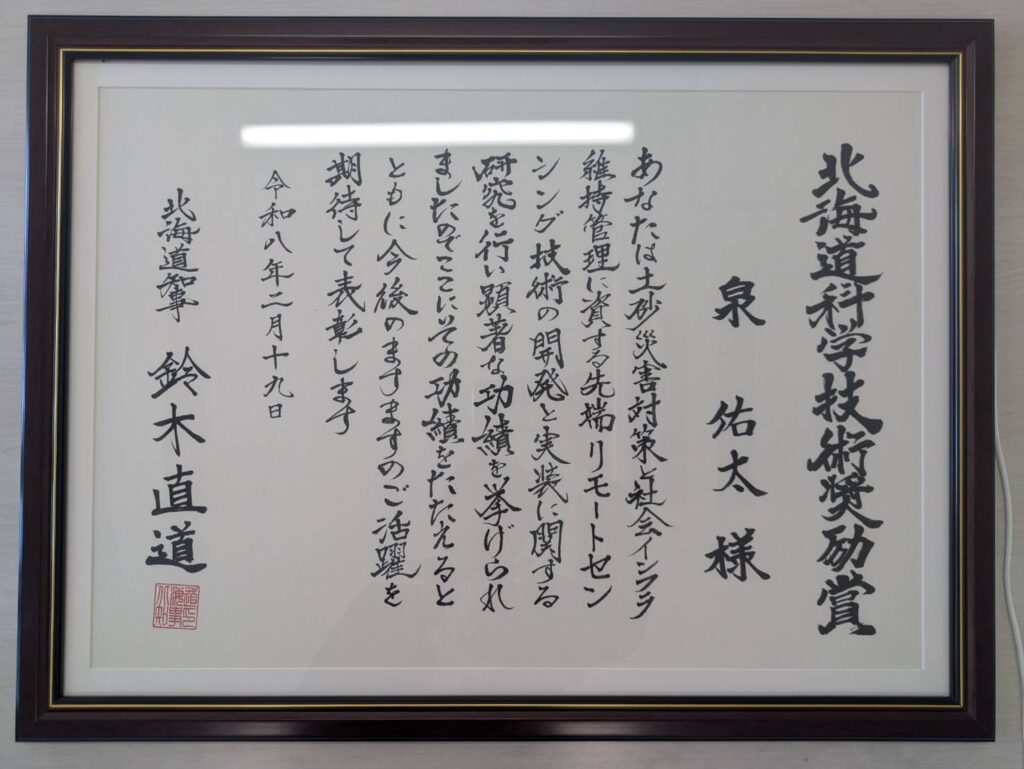 北海道科学技術奨励賞
泉 佑太 様
あなたは土砂災害対策と社会インフラ
維持管理に資する先端リモートセン
シング技術の開発と実装に関する
研究を行い顕著な功績を挙げられ
ましたのでここにその功績をたたえると
ともに今後のますますのご活躍を
期待して表彰します
令和八年二月十九日
北海道知事 鈴木直道